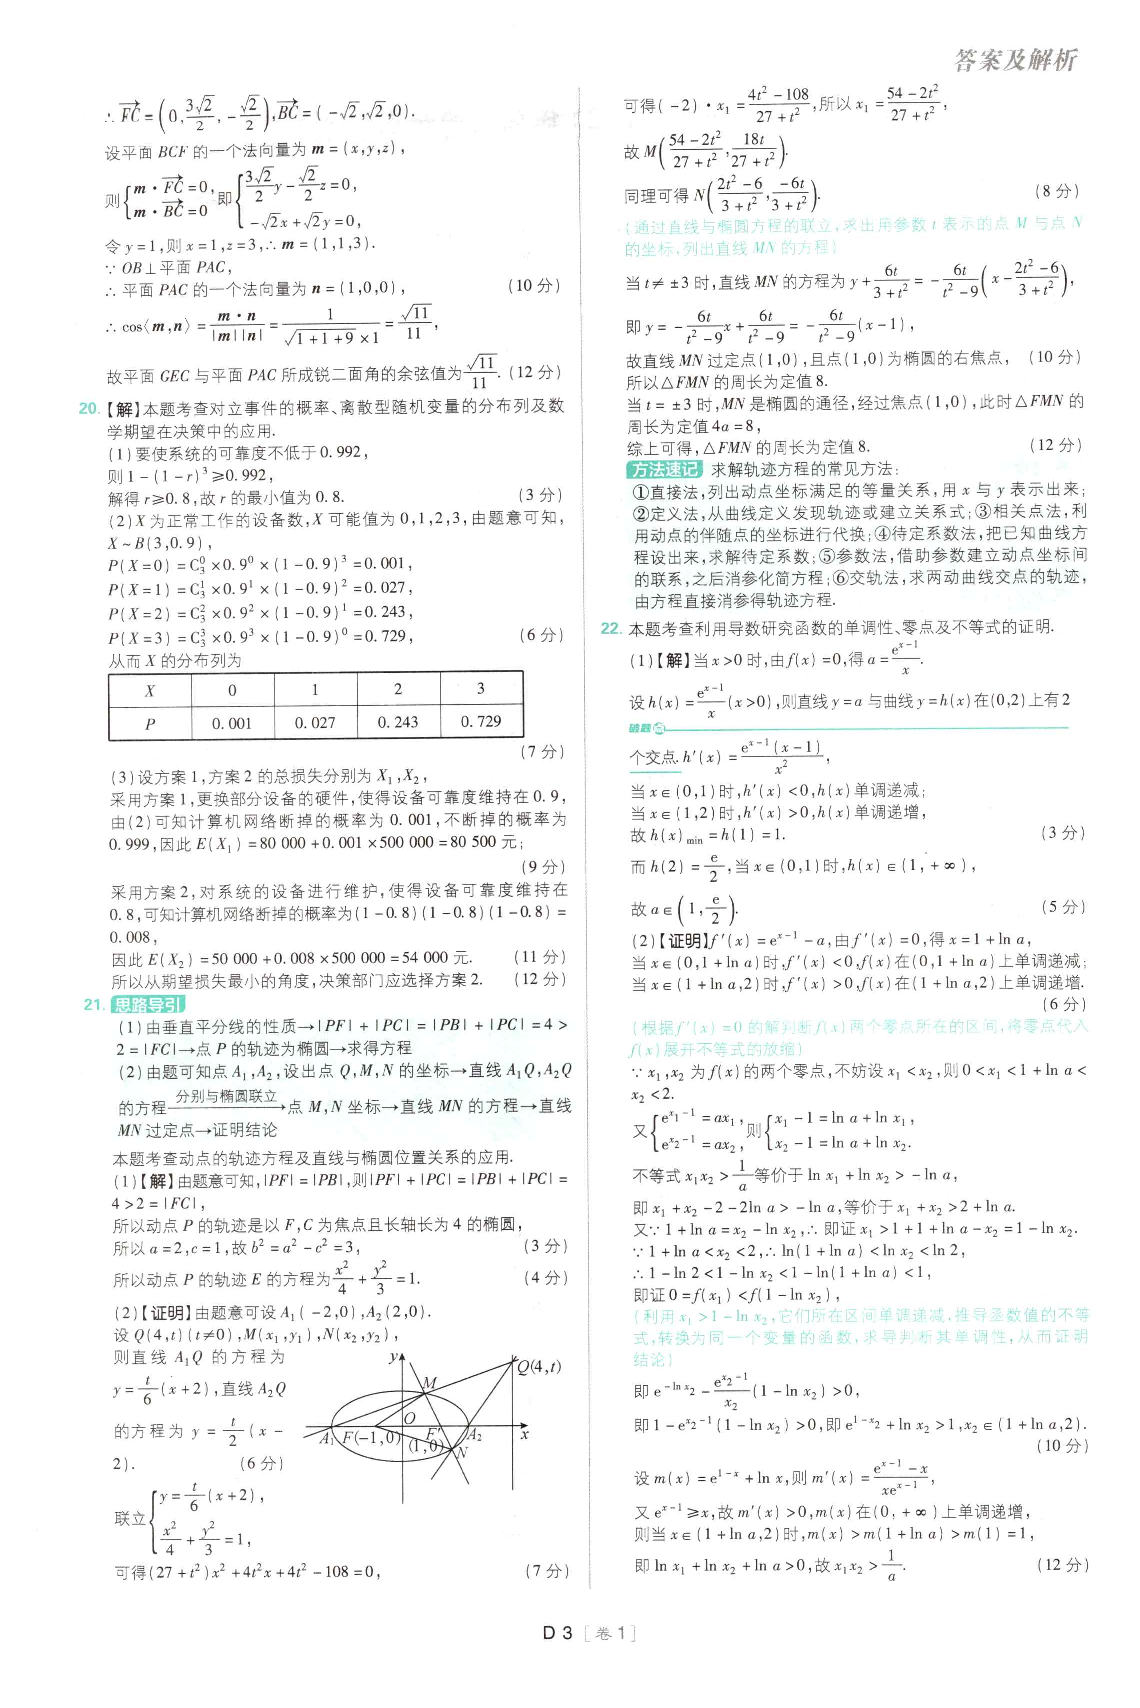 答案及解析
∴ FC→=(0, 3√2/2, -√2/2), BC→=(-√2,√2,0).
设平面 BCF 的一个法向量为 m=(x,y,z),
则{m·FC→=0, m·BC→=0 即{3√2/2 y-√2/2 z=0, -√2x+√2y=0,
令 y=1,则 x=1,z=3,∴ m=(1,1,3).
∵ OB⊥平面 PAC,
∴ 平面 PAC 的一个法向量为 n=(1,0,0), (10 分)
∴ cos〈m,n〉= m·n/|m||n| = 1/(√(1+1+9)×1) = √11/11,
故平面 GEC 与平面 PAC 所成锐二面角的余弦值为 √11/11. (12 分)
20.【解】本题考查对立事件的概率、离散型随机变量的分布列及数
学期望在决策中的应用.
(1)要使系统的可靠度不低于 0.992,
则 1-(1-r)³≥0.992,
解得 r≥0.8,故 r 的最小值为 0.8. (3 分)
(2)X 为正常工作的设备数,X 可能值为 0,1,2,3,由题意可知,
X~B(3,0.9),
P(X=0)=C₃⁰×0.9⁰×(1-0.9)³=0.001,
P(X=1)=C₃¹×0.9¹×(1-0.9)²=0.027,
P(X=2)=C₃²×0.9²×(1-0.9)¹=0.243,
P(X=3)=C₃³×0.9³×(1-0.9)⁰=0.729, (6 分)
从而 X 的分布列为
X 0 1 2 3
P 0.001 0.027 0.243 0.729
(7 分)
(3)设方案 1,方案 2 的总损失分别为 X₁,X₂,
采用方案 1,更换部分设备的硬件,使得设备可靠度维持在 0.9,
由(2)可知计算机网络断掉的概率为 0.001,不断掉的概率为
0.999,因此 E(X₁)=80 000+0.001×500 000=80 500 元;
(9 分)
采用方案 2,对系统的设备进行维护,使得设备可靠度维持在
0.8,可知计算机网络断掉的概率为(1-0.8)(1-0.8)(1-0.8)=
0.008,
因此 E(X₂)=50 000+0.008×500 000=54 000 元. (11 分)
所以从期望损失最小的角度,决策部门应选择方案 2. (12 分)
21. 思路导引
(1)由垂直平分线的性质→|PF|+|PC|=|PB|+|PC|=4>
2=|FC|→点 P 的轨迹为椭圆→求得方程
(2)由题可知点 A₁,A₂,设出点 Q,M,N 的坐标→直线 A₁Q,A₂Q
的方程 分别与椭圆联立→点 M,N 坐标→直线 MN 的方程→直线
MN 过定点→证明结论
本题考查动点的轨迹方程及直线与椭圆位置关系的应用.
(1)【解】由题意可知,|PF|=|PB|,则|PF|+|PC|=|PB|+|PC|=
4>2=|FC|,
所以动点 P 的轨迹是以 F,C 为焦点且长轴长为 4 的椭圆,
所以 a=2,c=1,故 b²=a²-c²=3, (3 分)
所以动点 P 的轨迹 E 的方程为 x²/4+y²/3=1. (4 分)
(2)【证明】由题意可设 A₁(-2,0),A₂(2,0).
设 Q(4,t)(t≠0),M(x₁,y₁),N(x₂,y₂),
则直线 A₁Q 的方程为
y=t/6(x+2),直线 A₂Q
的方程为 y=t/2(x-
2). (6 分)
y Q(4,t) M O A₁ F(-1,0) F′(1,0) A₂ N x
联立{y=t/6(x+2), x²/4+y²/3=1,
可得(27+t²)x²+4t²x+4t²-108=0, (7 分)
可得(-2)·x₁=(4t²-108)/(27+t²),所以 x₁=(54-2t²)/(27+t²),
故 M((54-2t²)/(27+t²), 18t/(27+t²)).
同理可得 N((2t²-6)/(3+t²), -6t/(3+t²)). (8 分)
(通过直线与椭圆方程的联立,求出用参数 t 表示的点 M 与点 N
的坐标,列出直线 MN 的方程)
当 t≠±3 时,直线 MN 的方程为 y+6t/(3+t²)=-6t/(t²-9)(x-(2t²-6)/(3+t²)),
即 y=-6t/(t²-9)x+6t/(t²-9)=-6t/(t²-9)(x-1),
故直线 MN 过定点(1,0),且点(1,0)为椭圆的右焦点, (10 分)
所以△FMN 的周长为定值 8.
当 t=±3 时,MN 是椭圆的通径,经过焦点(1,0),此时△FMN 的
周长为定值 4a=8,
综上可得,△FMN 的周长为定值 8. (12 分)
方法速记 求解轨迹方程的常见方法:
①直接法,列出动点坐标满足的等量关系,用 x 与 y 表示出来;
②定义法,从曲线定义发现轨迹或建立关系式;③相关点法,利
用动点的伴随点的坐标进行代换;④待定系数法,把已知曲线方
程设出来,求解待定系数;⑤参数法,借助参数建立动点坐标间
的联系,之后消参化简方程;⑥交轨法,求两动曲线交点的轨迹,
由方程直接消参得轨迹方程.
22. 本题考查利用导数研究函数的单调性、零点及不等式的证明.
(1)【解】当 x>0 时,由 f(x)=0,得 a=eˣ⁻¹/x.
设 h(x)=eˣ⁻¹/x(x>0),则直线 y=a 与曲线 y=h(x)在(0,2)上有 2
破题点
个交点.h′(x)=eˣ⁻¹(x-1)/x²,
当 x∈(0,1)时,h′(x)<0,h(x)单调递减;
当 x∈(1,2)时,h′(x)>0,h(x)单调递增,
故 h(x)min=h(1)=1. (3 分)
而 h(2)=e/2,当 x∈(0,1)时,h(x)∈(1,+∞),
故 a∈(1, e/2). (5 分)
(2)【证明】f′(x)=eˣ⁻¹-a,由 f′(x)=0,得 x=1+ln a,
当 x∈(0,1+ln a)时,f′(x)<0,f(x)在(0,1+ln a)上单调递减;
当 x∈(1+ln a,2)时,f′(x)>0,f(x)在(1+ln a,2)上单调递增.
(6 分)
(根据 f′(x)=0 的解判断 f(x)两个零点所在的区间,将零点代入
f(x)展开不等式的放缩)
∵ x₁,x₂ 为 f(x)的两个零点,不妨设 x₁<x₂,则 0<x₁<1+ln a<
x₂<2.
又{e^(x₁-1)=ax₁, e^(x₂-1)=ax₂, 则{x₁-1=ln a+ln x₁, x₂-1=ln a+ln x₂.
不等式 x₁x₂>1/a 等价于 ln x₁+ln x₂>-ln a,
即 x₁+x₂-2-2ln a>-ln a,等价于 x₁+x₂>2+ln a.
又∵ 1+ln a=x₂-ln x₂,∴ 即证 x₁>1+1+ln a-x₂=1-ln x₂.
∵ 1+ln a<x₂<2,∴ ln(1+ln a)<ln x₂<ln 2,
∴ 1-ln 2<1-ln x₂<1-ln(1+ln a)<1,
即证 0=f(x₁)<f(1-ln x₂),
(利用 x₁>1-ln x₂,它们所在区间单调递减,推导函数值的不等
式,转换为同一个变量的函数,求导判断其单调性,从而证明
结论)
即 e^(-ln x₂)-e^(x₂-1)/x₂(1-ln x₂)>0,
即 1-e^(x₂-1)(1-ln x₂)>0,即 e^(1-x₂)+ln x₂>1,x₂∈(1+ln a,2).
(10 分)
设 m(x)=e¹⁻ˣ+ln x,则 m′(x)=(eˣ⁻¹-x)/(xeˣ⁻¹),
又 eˣ⁻¹≥x,故 m′(x)>0,m(x)在(0,+∞)上单调递增,
则当 x∈(1+ln a,2)时,m(x)>m(1+ln a)>m(1)=1,
即 ln x₁+ln x₂+ln a>0,故 x₁x₂>1/a. (12 分)
D 3 [卷 1]